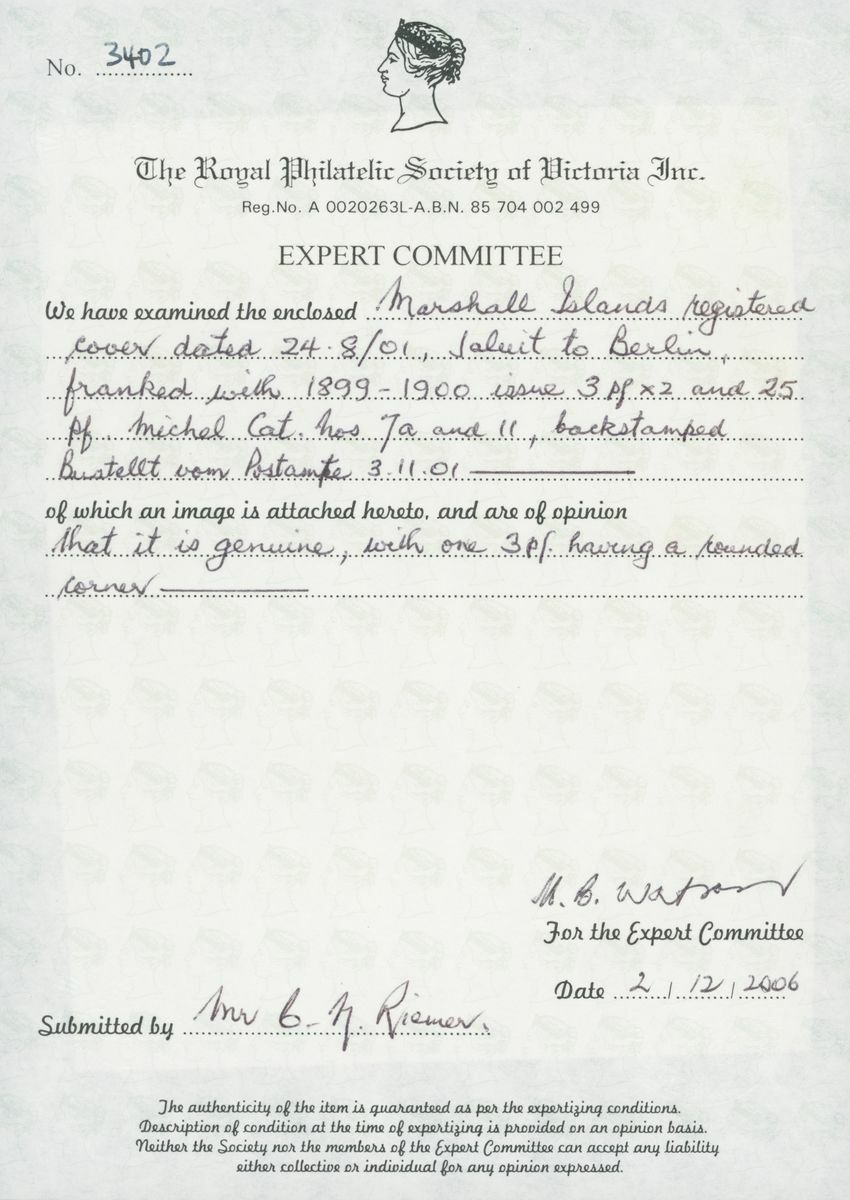 No. 3402
The Royal Philatelic Society of Victoria Inc.
Reg.No. A 0020263L-A.B.N. 85 704 002 499
EXPERT COMMITTEE
We have examined the enclosed Marshall Islands registered
cover dated 24.8/01, Jaluit to Berlin,
franked with 1899-1900 issue 3 pf x2 and 25
pf. Michel Cat. Nos 7a and 11, backstamped
Bustellt vom Postamte 3.11.01
of which an image is attached hereto, and are of opinion
that it is genuine, with one 3pf. having a rounded
corner
M. B. Watson
For the Expert Committee
Date 2 / 12 / 2006
Submitted by Mr C. N. Riemer.
The authenticity of the item is guaranteed as per the expertizing conditions.
Description of condition at the time of expertizing is provided on an opinion basis.
Neither the Society nor the members of the Expert Committee can accept any liability
either collective or individual for any opinion expressed.